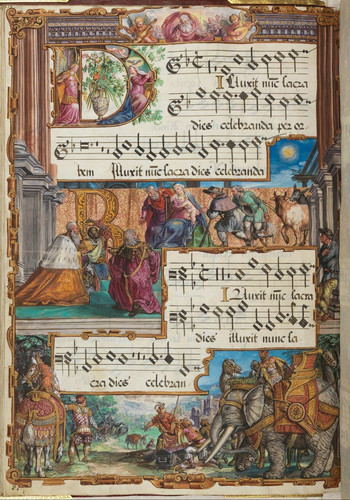 D
Illuxit nūc sacra
dies celebranda per or
bem Illuxit nūc sacra dies celebranda
B
Illuxit nūc sacra
dies illuxit nunc sa
cra dies celebran